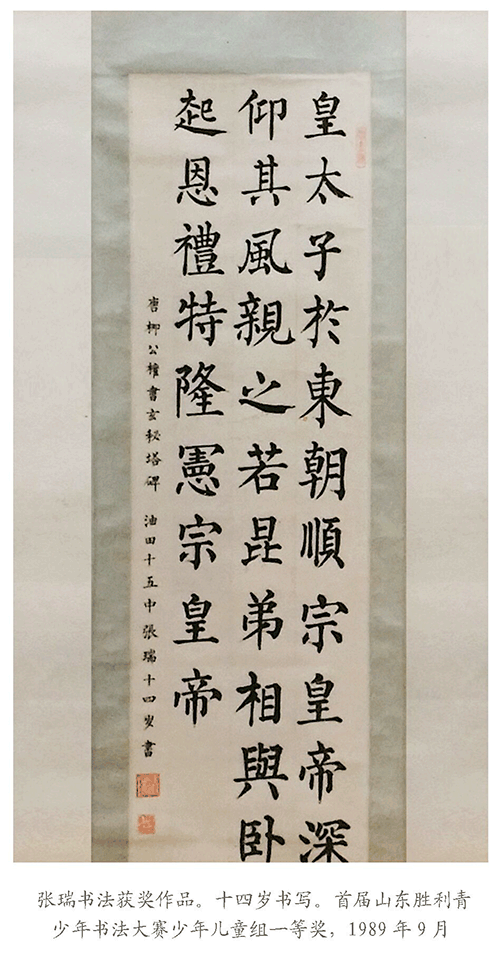 皇太子於東朝順宗皇帝深
仰其風親之若昆弟相與卧
起恩禮特隆憲宗皇帝
唐柳公權書玄秘塔碑 油田十五中張瑞十四岁書
张瑞书法获奖作品。十四岁书写。首届山东胜利青
少年书法大赛少年儿童组一等奖，1989年9月